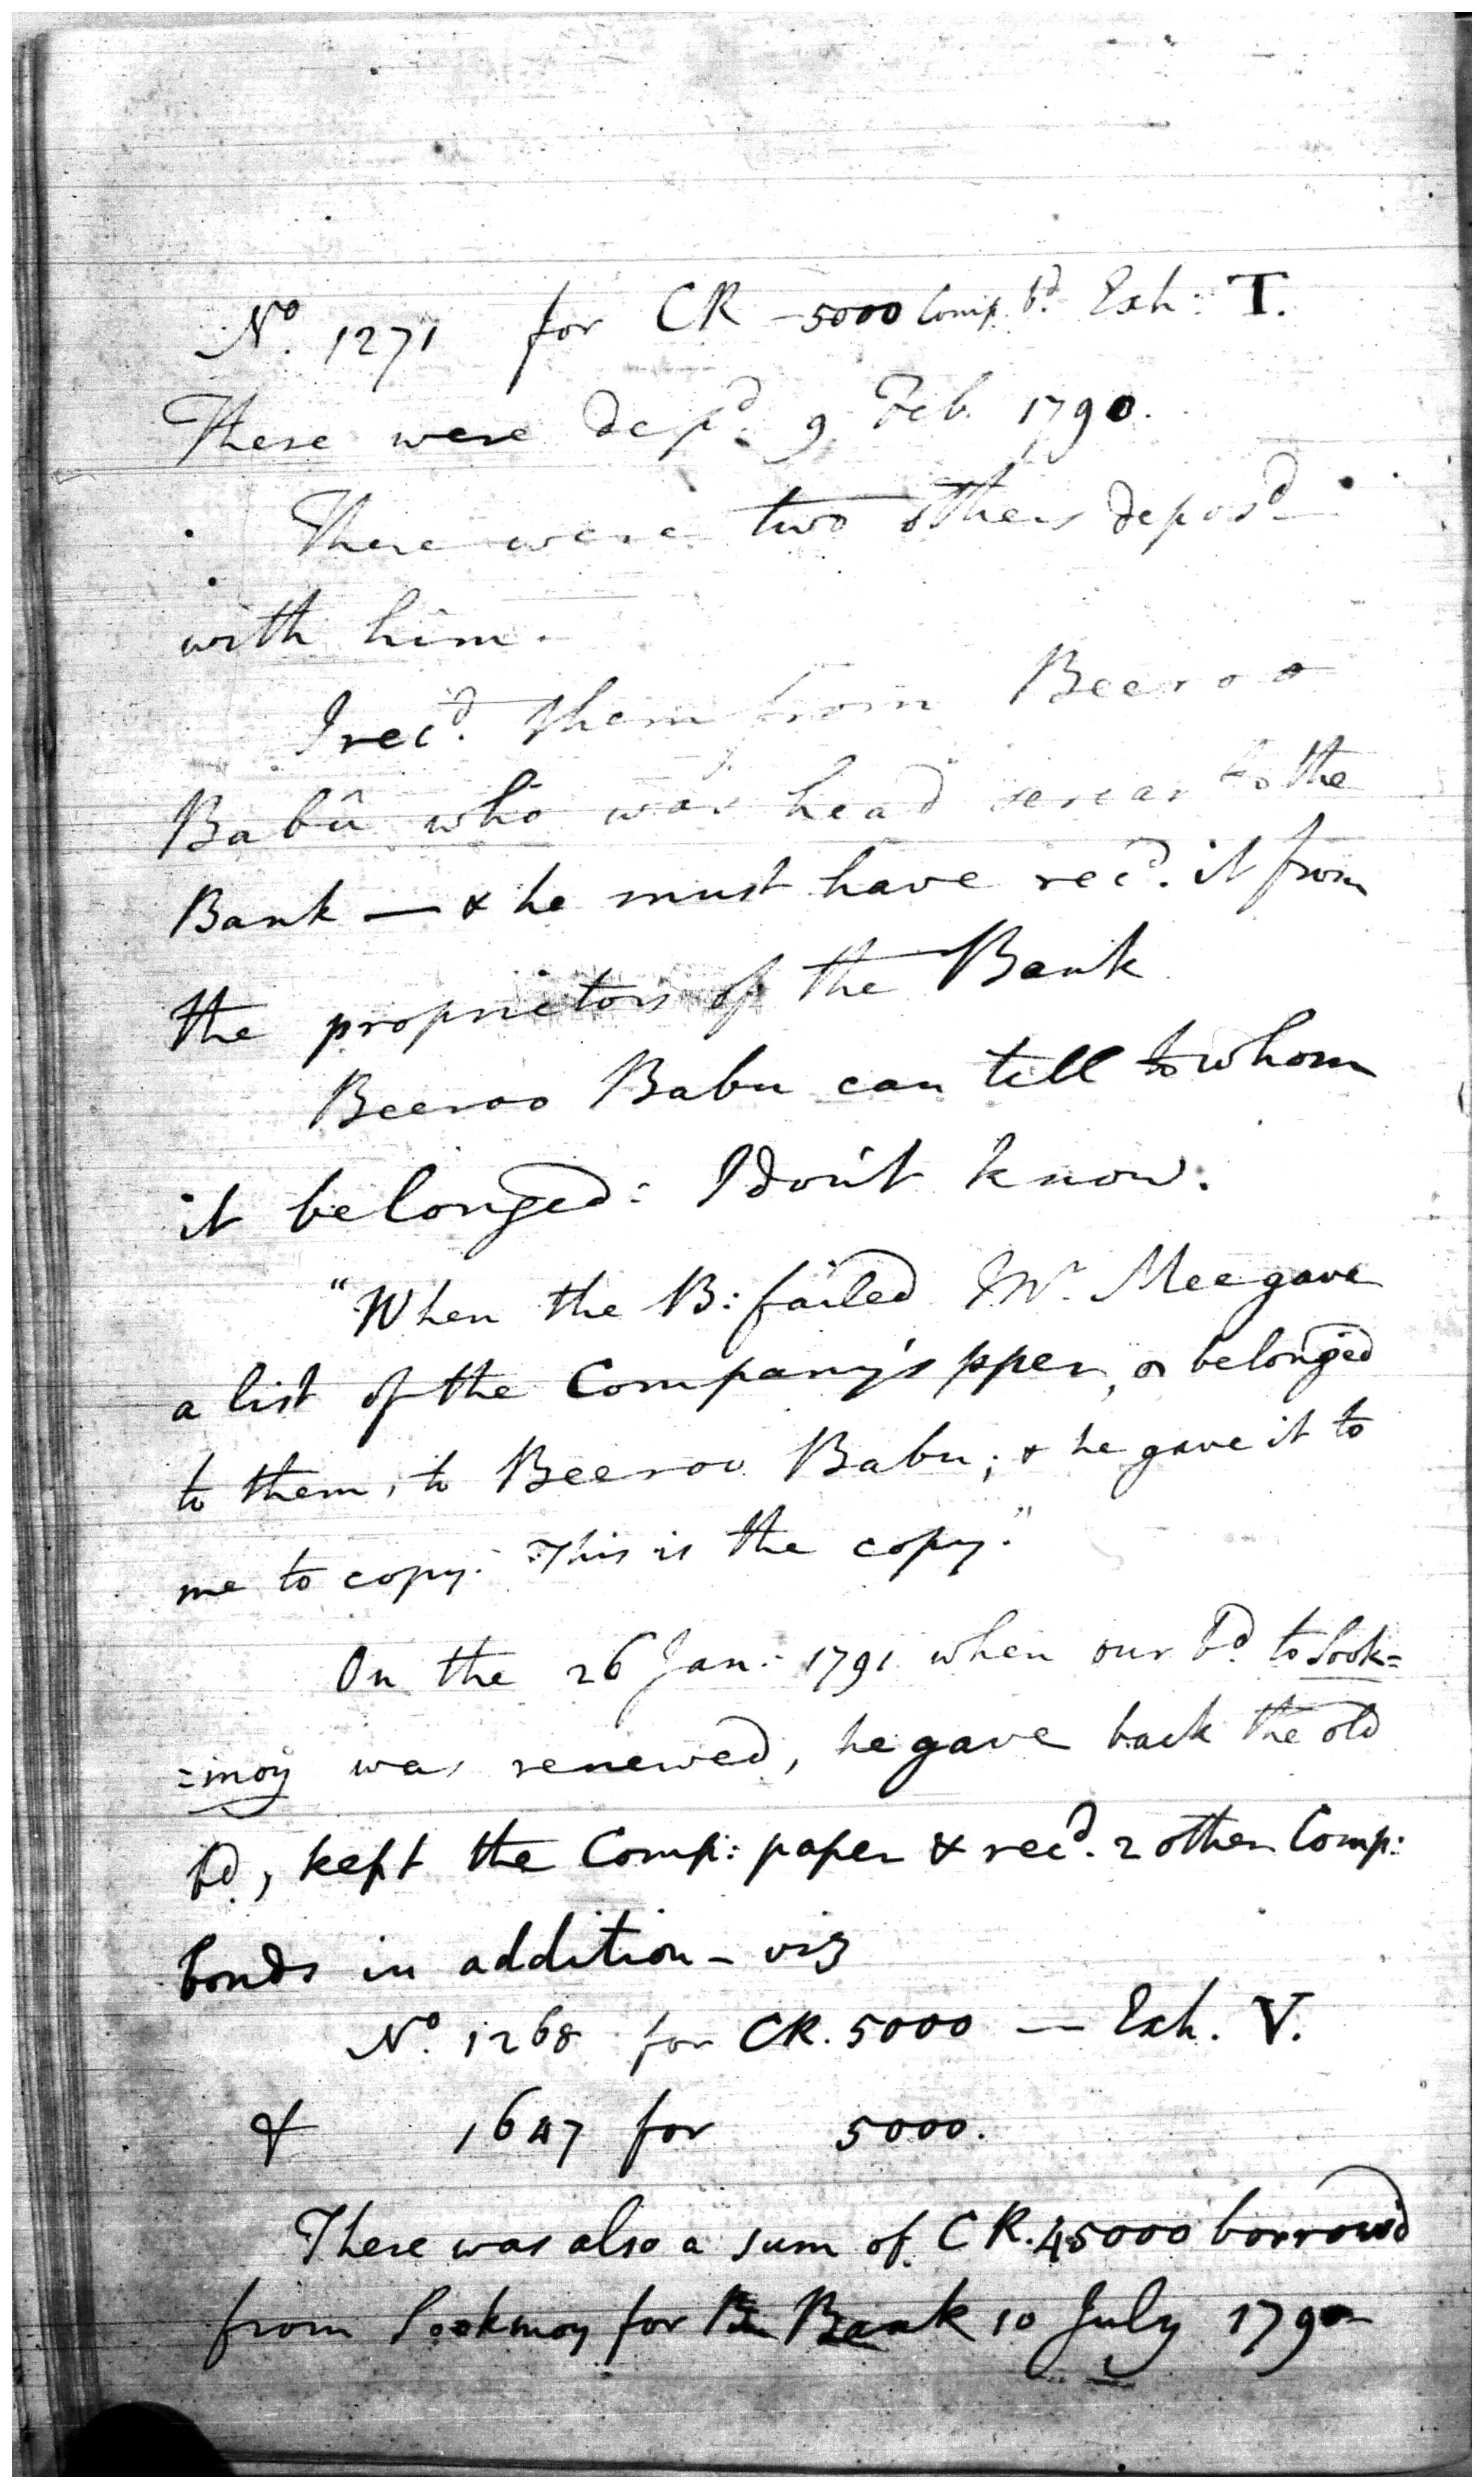 No. 1271 for CR - 5000 Comp. bd. Exh: T.
These were depd. 9 Feb. 1790.
There were two others deposd
with him.
I recd. them from Beeroo
Babû who was head sercar to the
Bank — & he must have recd. it from
the proprietors of the Bank
Beeroo Babu can tell to whom
it belonged: I don't know.
"When the B: failed Mr. Mee gave
a list of the Company's pper, as belonged
to them, to Beeroo Babu; & he gave it to
me to copy. This is the copy."
On the 26 Jan: 1791 when our bd. to Sook=
=moy was renewed, he gave back the old
bd., kept the Comp: paper & recd. 2 other Comp:
bonds in addition - viz
No. 1268 for CR. 5000 — Exh. V.
& 1647 for 5000.
There was also a sum of CR. 45000 borrow'd
from Sookmoy for Bank 10 July 1790